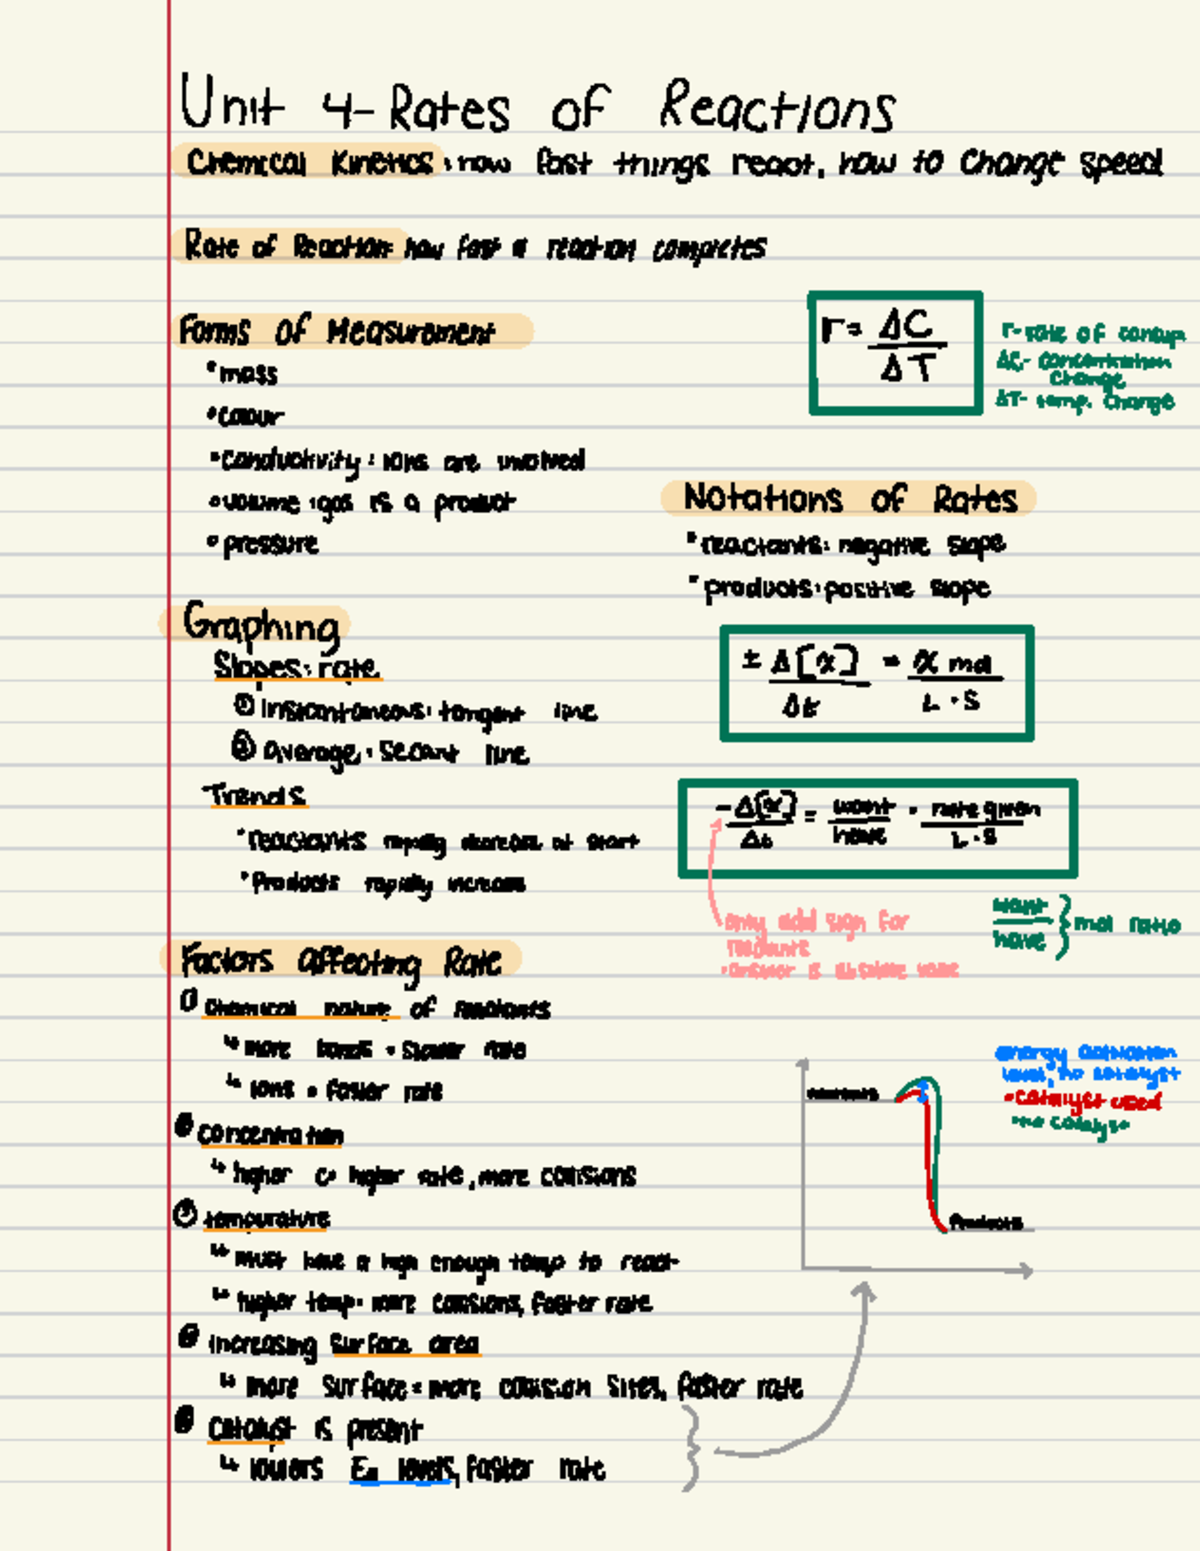 Unit 4 - Rates of Reactions
Chemical Kinetics: how fast things react, how to change speed
Rate of Reaction: how fast a reaction completes
Forms of Measurement
• mass
• colour
• conductivity: ions are involved
• volume: gas is a product
• pressure
r = ΔC / ΔT
r - rate of consump.
ΔC - concentration
change
ΔT - temp. change
Notations of Rates
• reactants: negative slope
• products: positive slope
± Δ[x] / Δt = x mol / L·s
-Δ[x] / Δt = want / have · rate given / L·s
only add sign for
reactants
• answer is absolute value
want / have } mol ratio
Graphing
Slopes: rate
① instantaneous: tangent line
② average: secant line
Trends
• reactants rapidly decrease at start
• Products rapidly increase
Factors Affecting Rate
① Chemical nature of reactants
↳ more bonds = slower rate
↳ ions = faster rate
② concentration
↳ higher C = higher rate, more collisions
③ tempurature
↳ must have a high enough temp to react
↳ higher temp = more collisions, faster rate
④ increasing surface area
↳ more surface = more collision sites, faster rate
⑤ Catalyst is present
↳ lowers Ea levels, faster rate
energy activation
level, no catalyst
- catalyst used
- no catalyst
reactants
Products